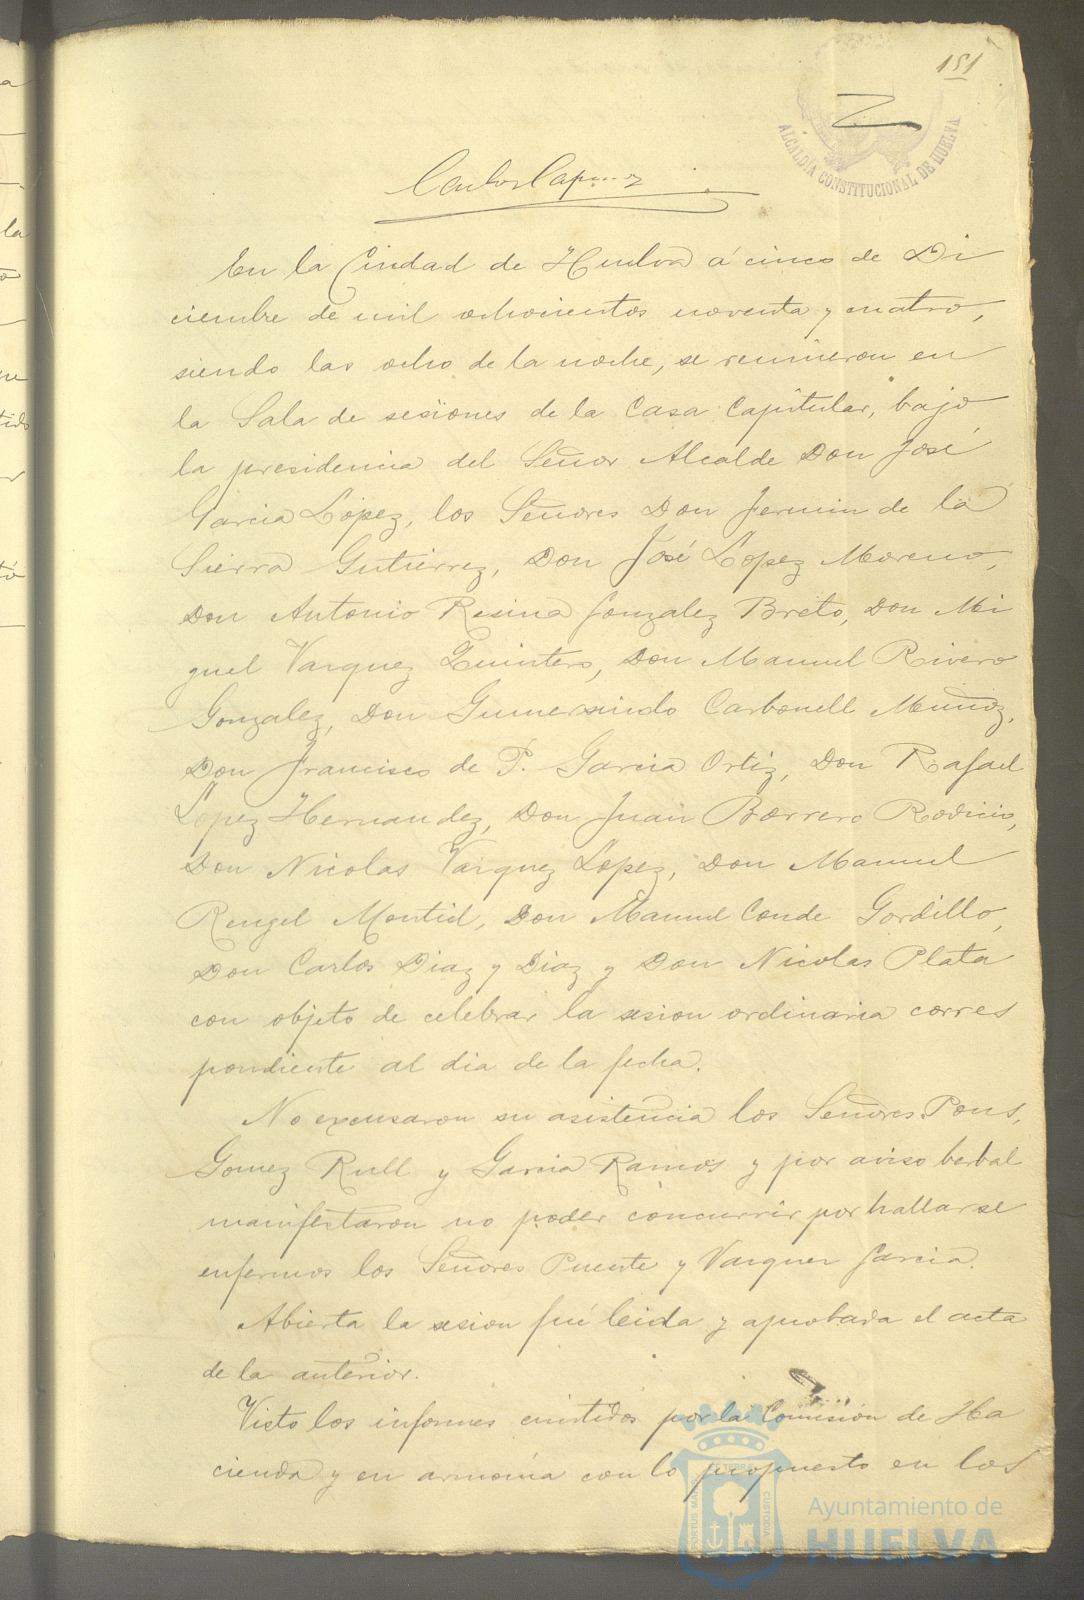 151
ALCALDÍA CONSTITUCIONAL DE HUELVA
Carlos
En la Ciudad de Huelva á cinco de Di
ciembre de mil ochocientos noventa y cuatro,
siendo las ocho de la noche, se reunieron en
la Sala de sesiones de la Casa Capitular, bajo
la presidencia del Señor Alcalde Don José
Garcia López, los Señores Don Fermin de la
Sierra Gutierrez, Don José López Moreno,
Don Antonio Resina Gonzalez Brito, Don Mi
guel Vazquez Quintero, Don Manuel Rivero
Gonzalez, Don Gumersindo Carbonell Muñoz,
Don Francisco de P. Garcia Ortiz, Don Rafael
López Hernandez, Don Juan Borrero Rodicio,
Don Nicolas Vazquez López, Don Manuel
Rengel Montiel, Don Manuel Conde Gordillo,
Don Carlos Diaz y Diaz y Don Nicolas Plata
con objeto de celebrar la sesion ordinaria corres
pondiente al dia de la fecha.
No excusaron su asistencia los Señores Pons,
Gomez Rull y Garcia Ramos y por aviso berbal
manifestaron no poder concurrir por hallarse
enfermos los Señores Puente y Vazquez Garcia.
Abierta la sesion fué leida y aprobada el acta
de la anterior.
Visto los informes emitidos por la Comisión de Ha
cienda y en armonia con lo propuesto en los
PORTUS MARIS ET TERRÆ CUSTODIA
Ayuntamiento de
HUELVA